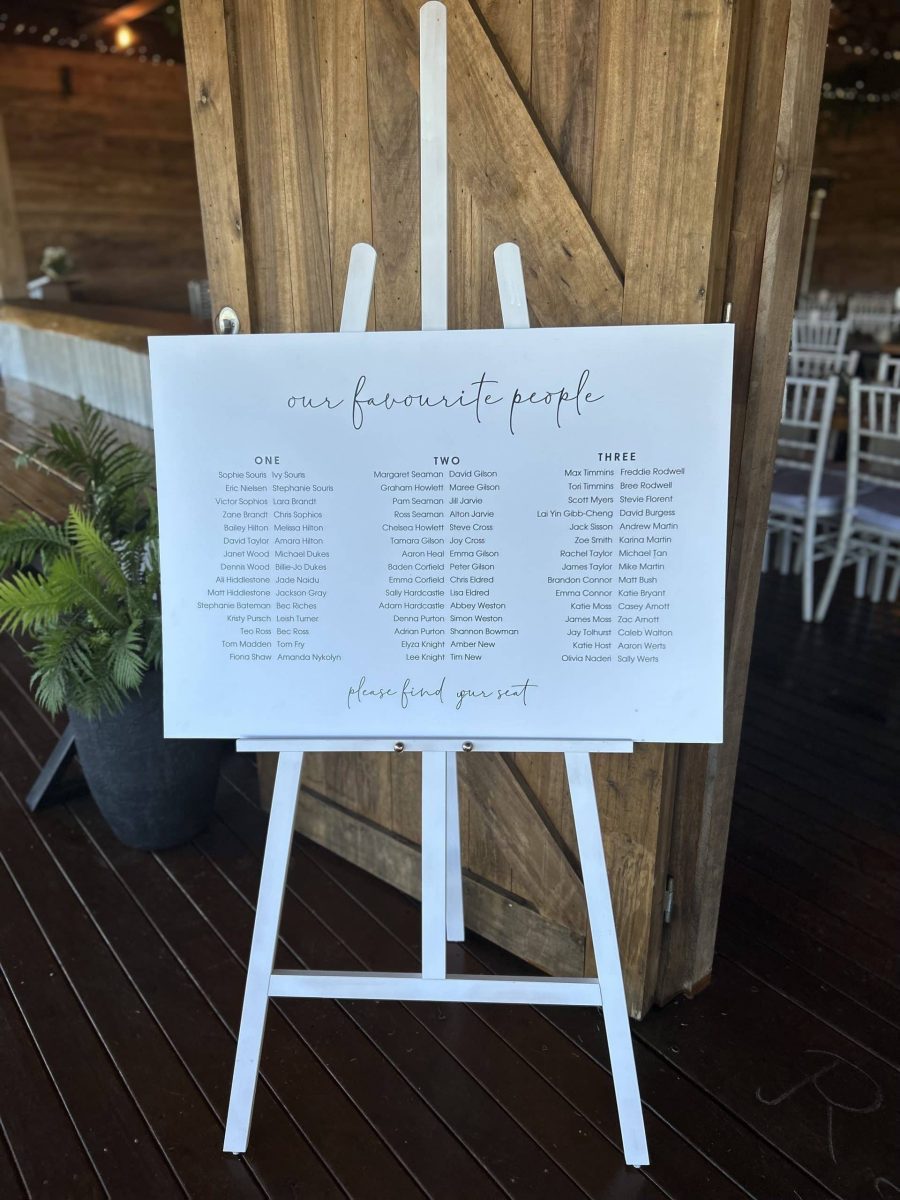 our favourite people
ONE
Sophie Souris Ivy Souris
Eric Nielsen Stephanie Souris
Victor Sophios Lara Brandt
Zane Brandt Chris Sophios
Bailey Hilton Melissa Hilton
David Taylor Amara Hilton
Janet Wood Michael Dukes
Dennis Wood Billie-Jo Dukes
Ali Hiddlestone Jade Naidu
Matt Hiddlestone Jackson Gray
Stephanie Bateman Bec Riches
Kristy Pursch Leish Turner
Teo Ross Bec Ross
Tom Madden Tom Fry
Fiona Shaw Amanda Nykolyn
TWO
Margaret Seaman David Gilson
Graham Howlett Maree Gilson
Pam Seaman Jill Jarvie
Ross Seaman Alton Jarvie
Chelsea Howlett Steve Cross
Tamara Gilson Joy Cross
Aaron Heal Emma Gilson
Baden Corfield Peter Gilson
Emma Corfield Chris Eldred
Sally Hardcastle Lisa Eldred
Adam Hardcastle Abbey Weston
Denna Purton Simon Weston
Adrian Purton Shannon Bowman
Elyza Knight Amber New
Lee Knight Tim New
THREE
Max Timmins Freddie Rodwell
Tori Timmins Bree Rodwell
Scott Myers Stevie Florent
Lai Yin Gibb-Cheng David Burgess
Jack Sisson Andrew Martin
Zoe Smith Karina Martin
Rachel Taylor Michael Tan
James Taylor Mike Martin
Brandon Connor Matt Bush
Emma Connor Katie Bryant
Katie Moss Casey Arnott
James Moss Zac Arnott
Jay Tolhurst Caleb Walton
Katie Host Aaron Werts
Olivia Naderi Sally Werts
please find your seat
R